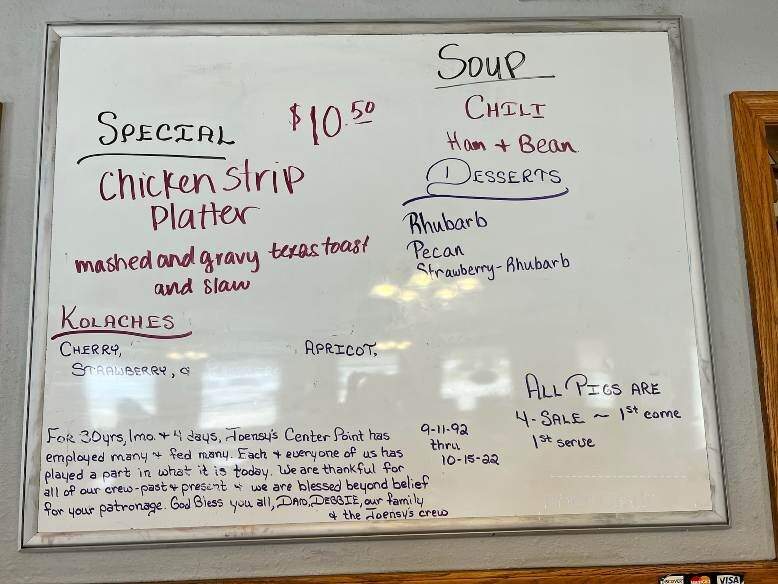 SPECIAL
$10.50
Chicken Strip
Platter
mashed and gravy texas toast
and slaw
SOUP
CHILI
Ham + Bean
DESSERTS
Rhubarb
Pecan
Strawberry-Rhubarb
KOLACHES
CHERRY, APRICOT,
STRAWBERRY, &
ALL PIGS ARE
4-SALE ~ 1st come
1st serve
FOR 30yrs, 1mo. + 4 days, Joensy's Center Point has
employed many + fed many. Each + everyone of us has
played a part in what it is today. We are thankful for
all of our crew-past + present + we are blessed beyond belief
for your patronage. God Bless you all, DAD, DEBBIE, our family
+ the Joensy's crew
9-11-92
thru
10-15-22
DISCOVER
VISA